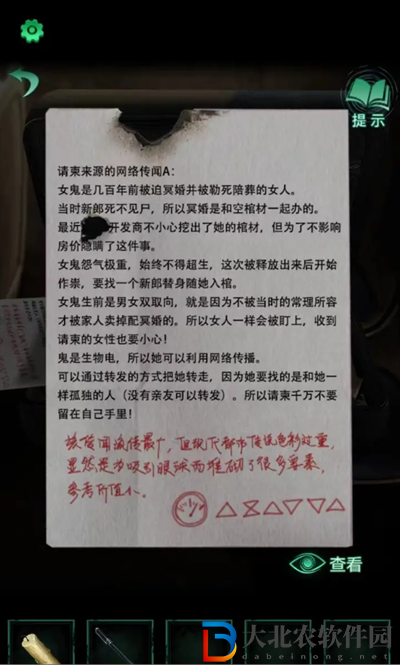 提示
请柬来源的网络传闻A：
女鬼是几百年前被迫冥婚并被勒死陪葬的女人。
当时新郎死不见尸，所以冥婚是和空棺材一起办的。
最近 开发商不小心挖出了她的棺材，但为了不影响
房价隐瞒了这件事。
女鬼怨气极重，始终不得超生，这次被释放出来后开始
作祟，要找一个新郎替身随她入棺。
女鬼生前是男女双取向，就是因为不被当时的常理所容
才被家人卖掉配冥婚的。所以女人一样会被盯上，收到
请柬的女性也要小心！
鬼是生物电，所以她可以利用网络传播。
可以通过转发的方式把她转走，因为她要找的是和她一
样孤独的人（没有亲友可以转发）。所以请柬千万不要
留在自己手里！
该传闻流传最广，但现代都市传说色彩过重，
显然是为吸引眼球而堆砌了很多要素，
参考价值小。
查看
大北农软件园
dabeinong.net